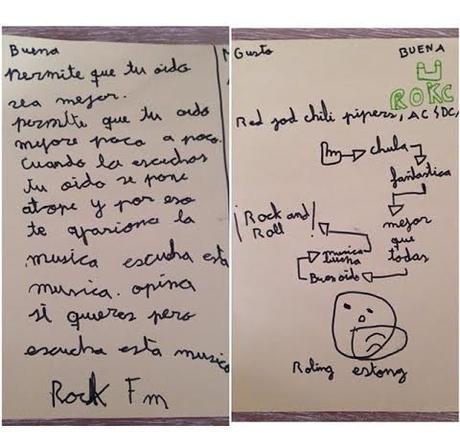 Buena
permite que tu oido
sea mejor.
permite que tu oido
mejore poco a poco.
cuando la escuchas
tu oido se pone
atope y por eso
te apasiona la
musica escucha esta
musica. opina
si quieres pero
escucha esta musica
Rock Fm
Gusto
BUENA
ROKC
Red jod chili pipers, AC DC,
fm chula
fantastica
mejor
que
todas
Buen oido
musica buena
¡Rock and
Roll!
Roling estong